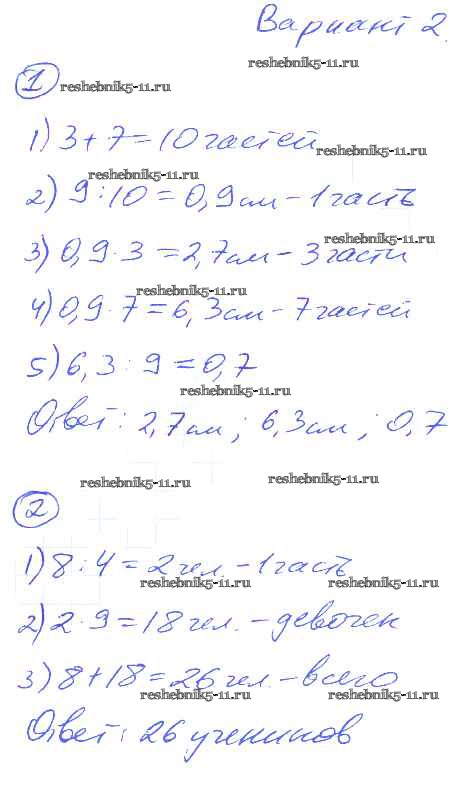 Вариант 2.
reshebnik5-11.ru
1
reshebnik5-11.ru
1) 3+7=10 частей
reshebnik5-11.ru
reshebnik5-11.ru
2) 9:10=0,9см-1часть
reshebnik5-11.ru
3) 0,9·3=2,7см-3части
reshebnik5-11.ru
4) 0,9·7=6,3см-7частей
5) 6,3:9=0,7
reshebnik5-11.ru
Ответ: 2,7см; 6,3см; 0,7
reshebnik5-11.ru reshebnik5-11.ru
2
1) 8:4=2чел.-1часть
reshebnik5-11.ru reshebnik5-11.ru
2) 2·9=18чел.-девочек
3) 8+18=26чел.-всего
reshebnik5-11.ru reshebnik5-11.ru
Ответ: 26 учеников